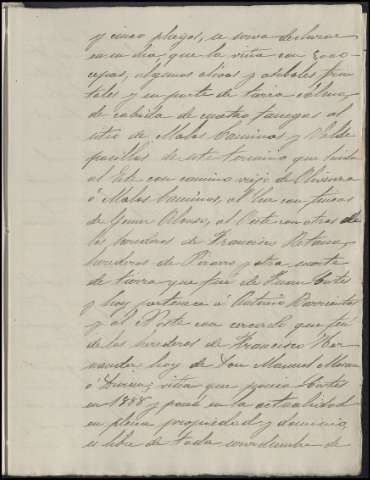 y cinco plazos, se sirva declarar
en su dia, que la viña con 5000
cepas, algunos olivos y arboles fru
tales y en parte de tierra calma,
de cabida de cuatro fanegas al
sitio de Malos Caminos y Valde
pasillas de este termino que linda
al Este con camino viejo de Olivenza
ó Malos Caminos, al Sur con fincas
de Gimon Alonso, al Oeste con otras de
los herederos de Francisco Retamar,
herederos de Pizarro y otra suerte
de tierra que fué de Juan Cortés
y hoy pertenece á Antonio Barrientos
y al Norte con cercado que fué
de los herederos de Francisco Her
nandez hoy de Don Manuel Moreno
ó viña que poseia Cortés
en 1888 y posee en la actualidad
en plena propiedad y dominio,
es libre de toda servidumbre de